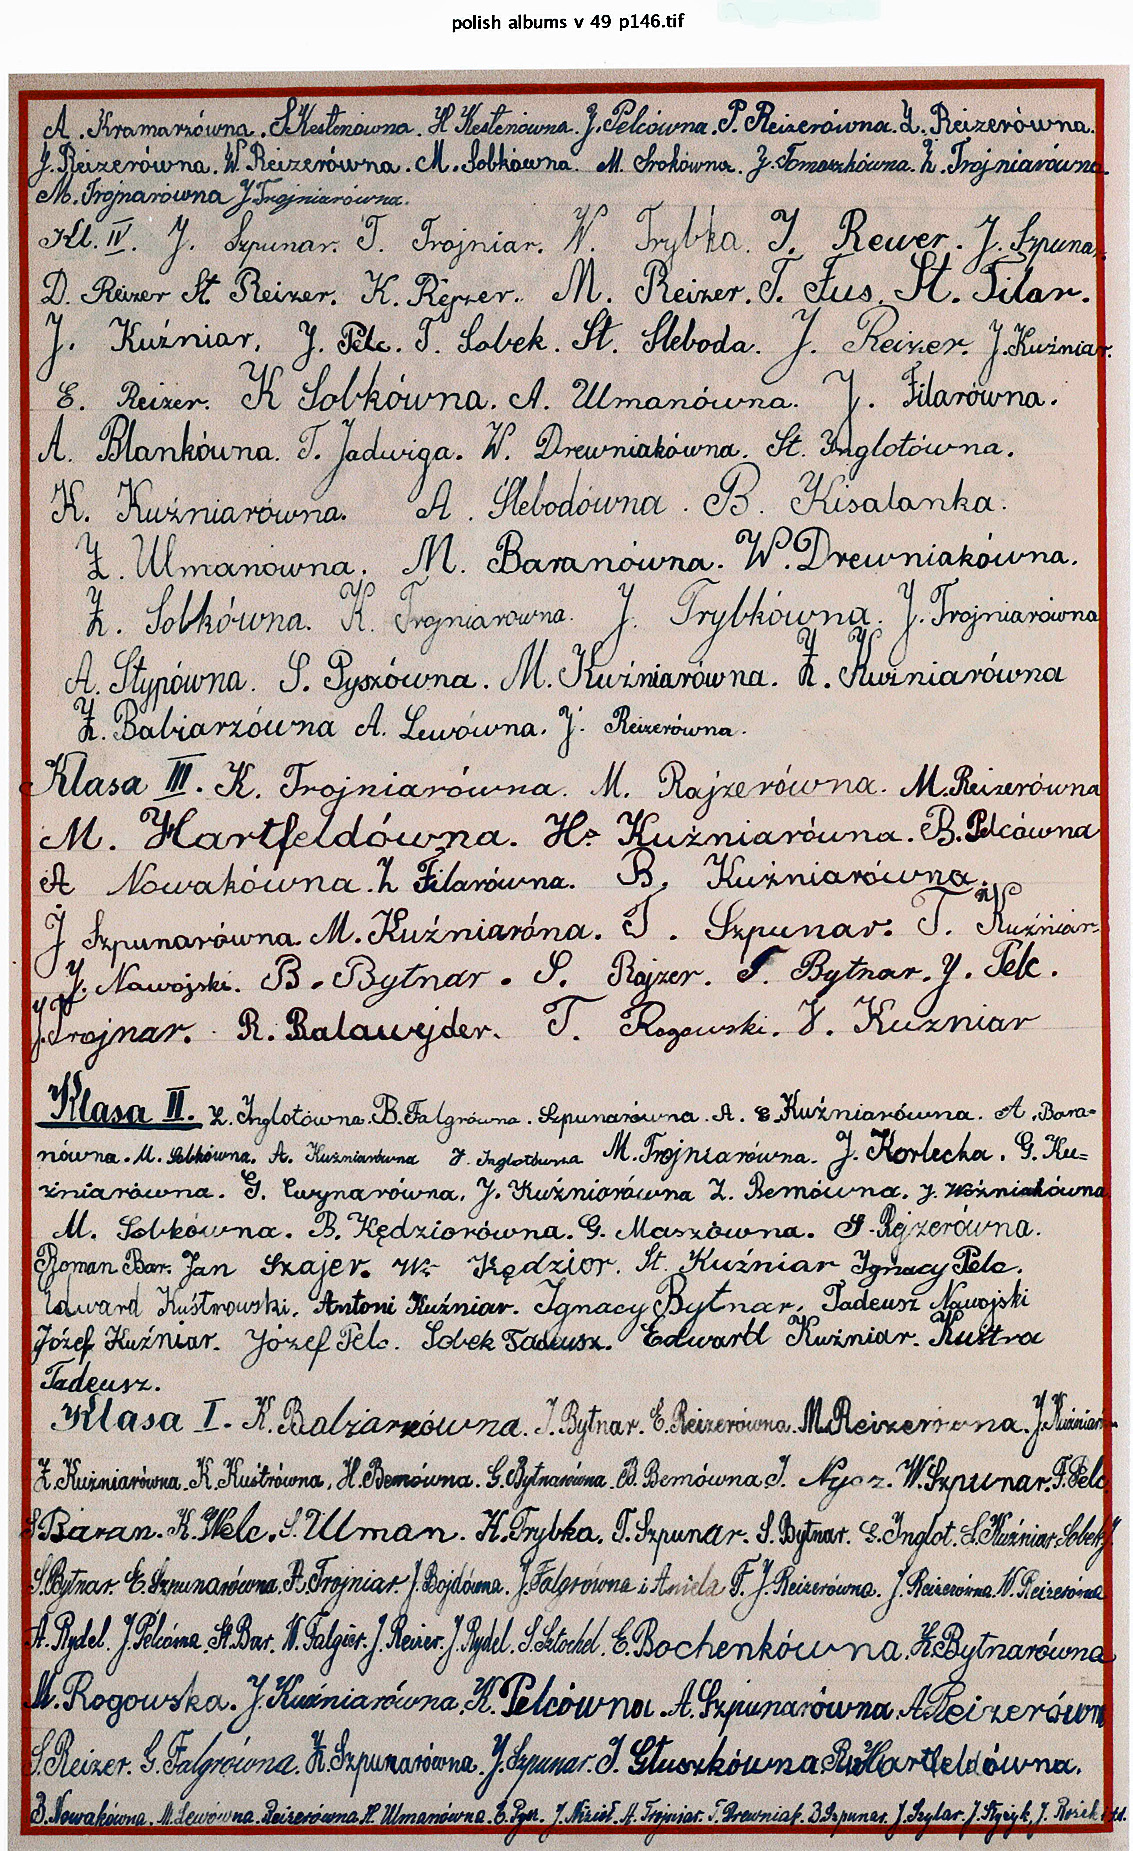 polish albums v 49 p146.tif
A. Kramarzówna. S. Kestenówna. H. Kestenówna. J. Pelcówna. P. Reizerówna. Z. Reizerówna.
J. Reizerówna. W. Reizerówna. M. Sobkówna. M. Srokówna. J. Tomaszkówna. Z. Trojniarówna.
M. Trojnarówna J. Trojniarówna.
Kl. IV. J. Szpunar. T. Trojniar. W. Trybka. J. Rewer. J. Szpunar.
D. Reizer St. Reizer. K. Rejzer. M. Reizer. T. Fus. St. Filar.
J. Kuźniar. J. Pelc. T. Sobek. St. Sleboda. J. Reizer. J. Kuźniar.
E. Reizer. K Sobkówna. A. Ulmanówna. J. Filarówna.
A. Blankówna. T. Jadwiga. W. Drewniakówna. St. Inglotówna.
K. Kuźniarówna. A. Slebodówna. B. Kisalanka.
Z. Ulmanówna. M. Baranówna. W. Drewniakówna.
Z. Sobkówna. K. Trojniarówna. J. Trybkówna. J. Trojniarówna
A. Stypówna. S. Pyszówna. M. Kuźniarówna. Z. Kuźniarówna
Z. Babiarzówna A. Lewówna. J. Reizerówna.
Klasa III. K. Trojniarówna. M. Rajzerówna. M. Reizerówna
M. Hartfeldówna. H. Kuźniarówna. B. Pelcówna
A Nowakówna. Z Filarówna. B. Kuźniarówna.
J Szpunarówna. M. Kuźniaróna. T. Szpunar. T. Kuźniar.
J. Nawojski. B. Bytnar. S. Rajzer. T. Bytnar. J. Pelc.
J. Trojnar. R. Balawejder. T. Rogowski. J. Kuzniar
Klasa II. Z. Inglotówna. B. Falgrówna. Szpunarówna. A. E. Kuźniarówna. A. Bara-
nówna. M. Sobkówna. A. Kuźniarówna J. Inglotówna M. Trojniarówna. J. Korlecka. G. Ku-
źniarówna. G. Cwynarówna. J. Kuźniarówna Z. Bemówna. J. Woźniakówna
M. Sobkówna. B. Kędziorówna. G. Maszówna. S. Rejzerówna.
Roman Bar. Jan Szajer. Wł. Kędzior. St. Kuźniar Ignacy Pelc.
Edward Kuśtrowski. Antoni Kuźniar. Ignacy Bytnar. Tadeusz Nawojski
Józef Kuźniar. Józef Pelc. Sobek Tadeusz. Edward Kuźniar. Kustra
Tadeusz.
Klasa I. K. Babiarzówna. J. Bytnar. E. Reizerówna. M. Reizerówna. J. Kuźniar
Z. Kuźniarówna. K. Kuśtrówna. H. Bemówna. G. Bytnarówna. B. Bemówna. J. Nycz. W. Szpunar. F. Pelc.
S. Baran. K. Welc. S. Ulman. K. Trybka. T. Szpunar. S. Bytnar. G. Inglot. S. Kuźniar. Sobek J.
S. Bytnar. E. Szpunarówna. A. Trojniar. J. Bojdówna. J. Falgrówna i Aniela F. J. Reizerówna. J. Reizerówna. W. Reizerówna
A. Rydel. J. Pelcówna. St. Bar. W. Falgier. J. Reizer. J. Rydel. S. Sztochel. E. Bochenkówna. K. Bytnarówna
M. Rogowska. J. Kuźniarówna. K. Pelcówna. A. Szpunarówna. A. Reizerówn
S. Reizer. G. Falgrówna. K. Szpunarówna. J. Szpunar. J. Głuszkówna. Hartfeldówna.
B. Nowakówna. M. Lewówna. Reizerówna. H. Ulmanówna. E. J. Nizioł. A. Trojniar. T. Drewniak. B. Szpunar. J. Szylar. J. J. Rożek itd.